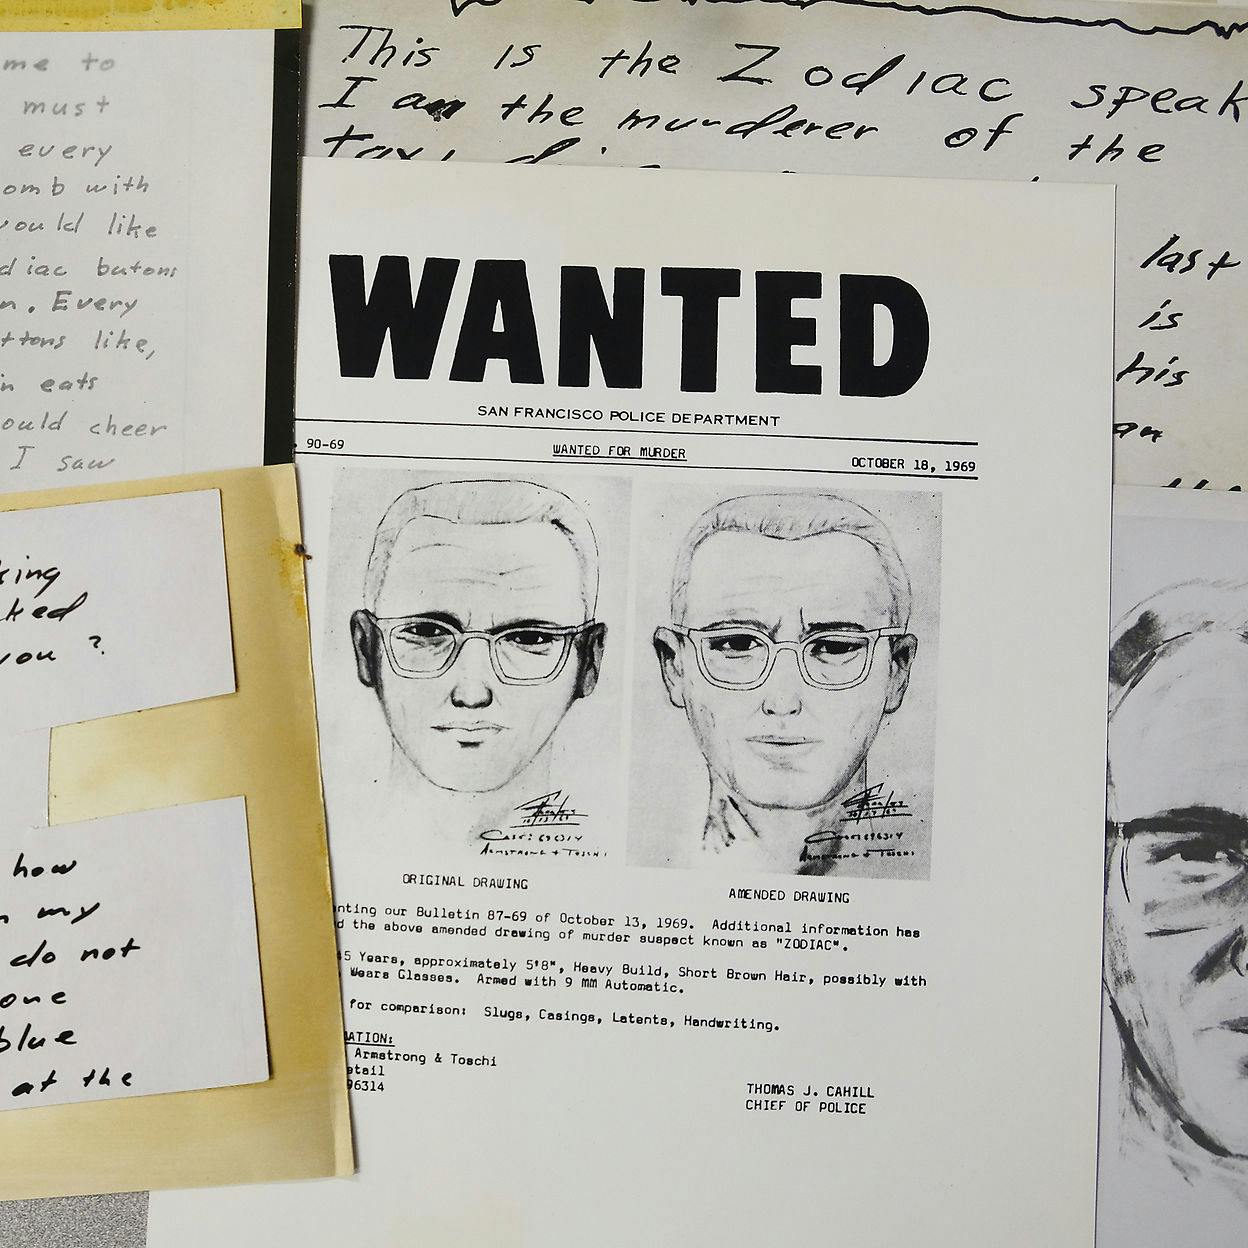 me to
must
every
omb with
would like
diac butons
n. Every
ttons like,
n eats
ould cheer
I saw
king
ked
you ?
how
my
do not
one
blue
at the
This is the Zodiac speak
I am the murderer of the
last
is
his
an
WANTED
SAN FRANCISCO POLICE DEPARTMENT
90-69 WANTED FOR MURDER OCTOBER 18, 1969
ORIGINAL DRAWING AMENDED DRAWING
nting our Bulletin 87-69 of October 13, 1969. Additional information has
d the above amended drawing of murder suspect known as "ZODIAC".
45 Years, approximately 5'8", Heavy Build, Short Brown Hair, possibly with
Wears Glasses. Armed with 9 MM Automatic.
for comparison: Slugs, Casings, Latents, Handwriting.
MATION:
Armstrong & Toschi
etail
96314
THOMAS J. CAHILL
CHIEF OF POLICE